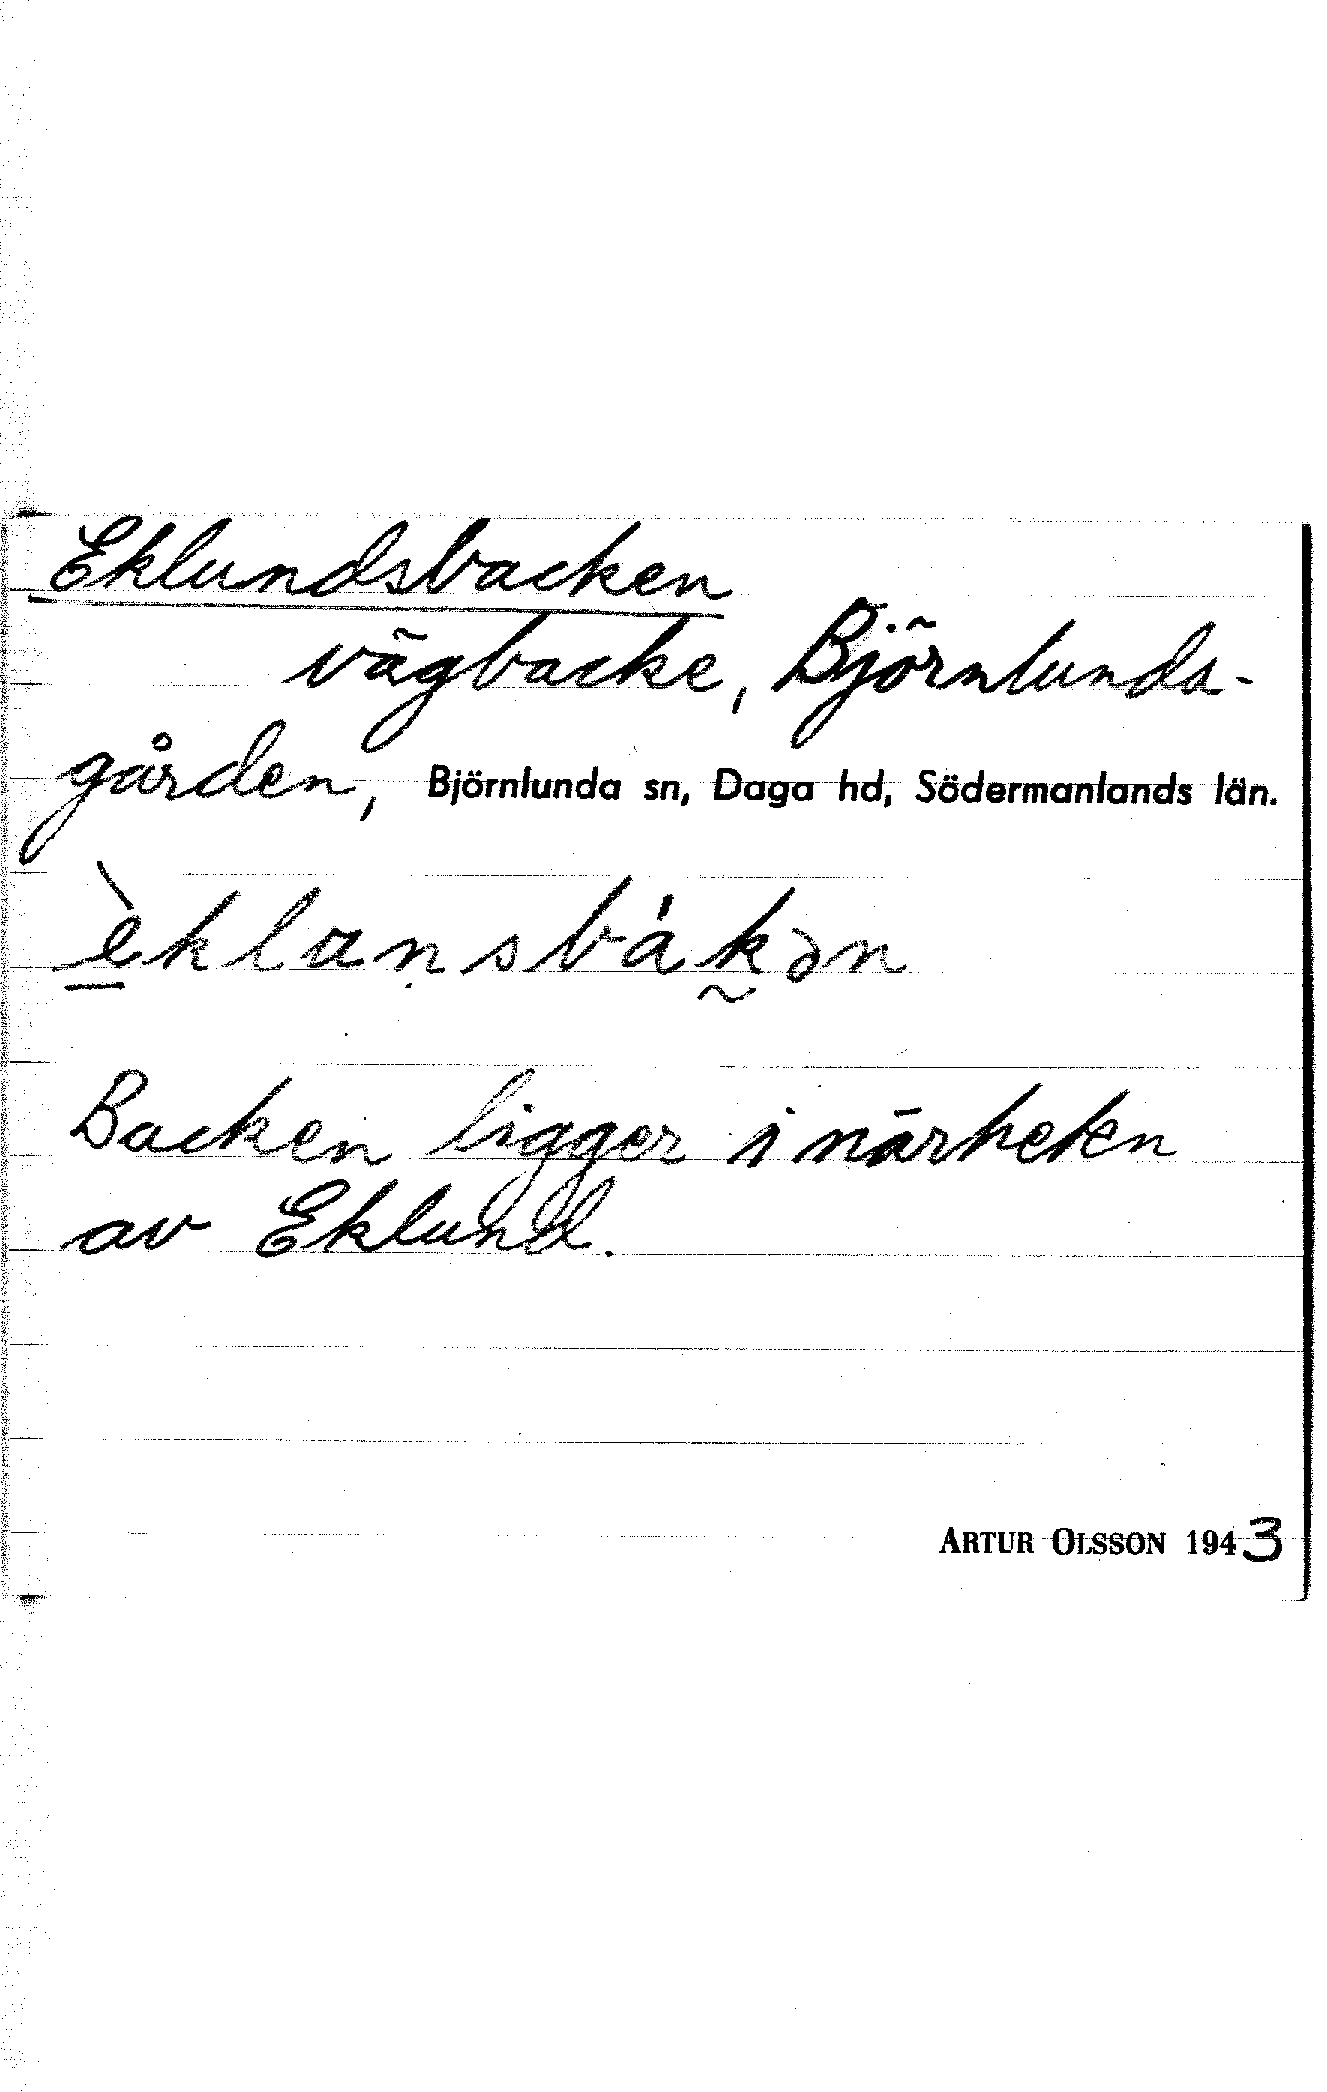 Eklundsbacken
vägbacke, Björnlunda-
gården, Björnlunda sn, Daga hd, Södermanlands län.
è̲klaṇsbák̰ən
Backen ligger i närheten
av Eklund.
ARTUR OLSSON 1943